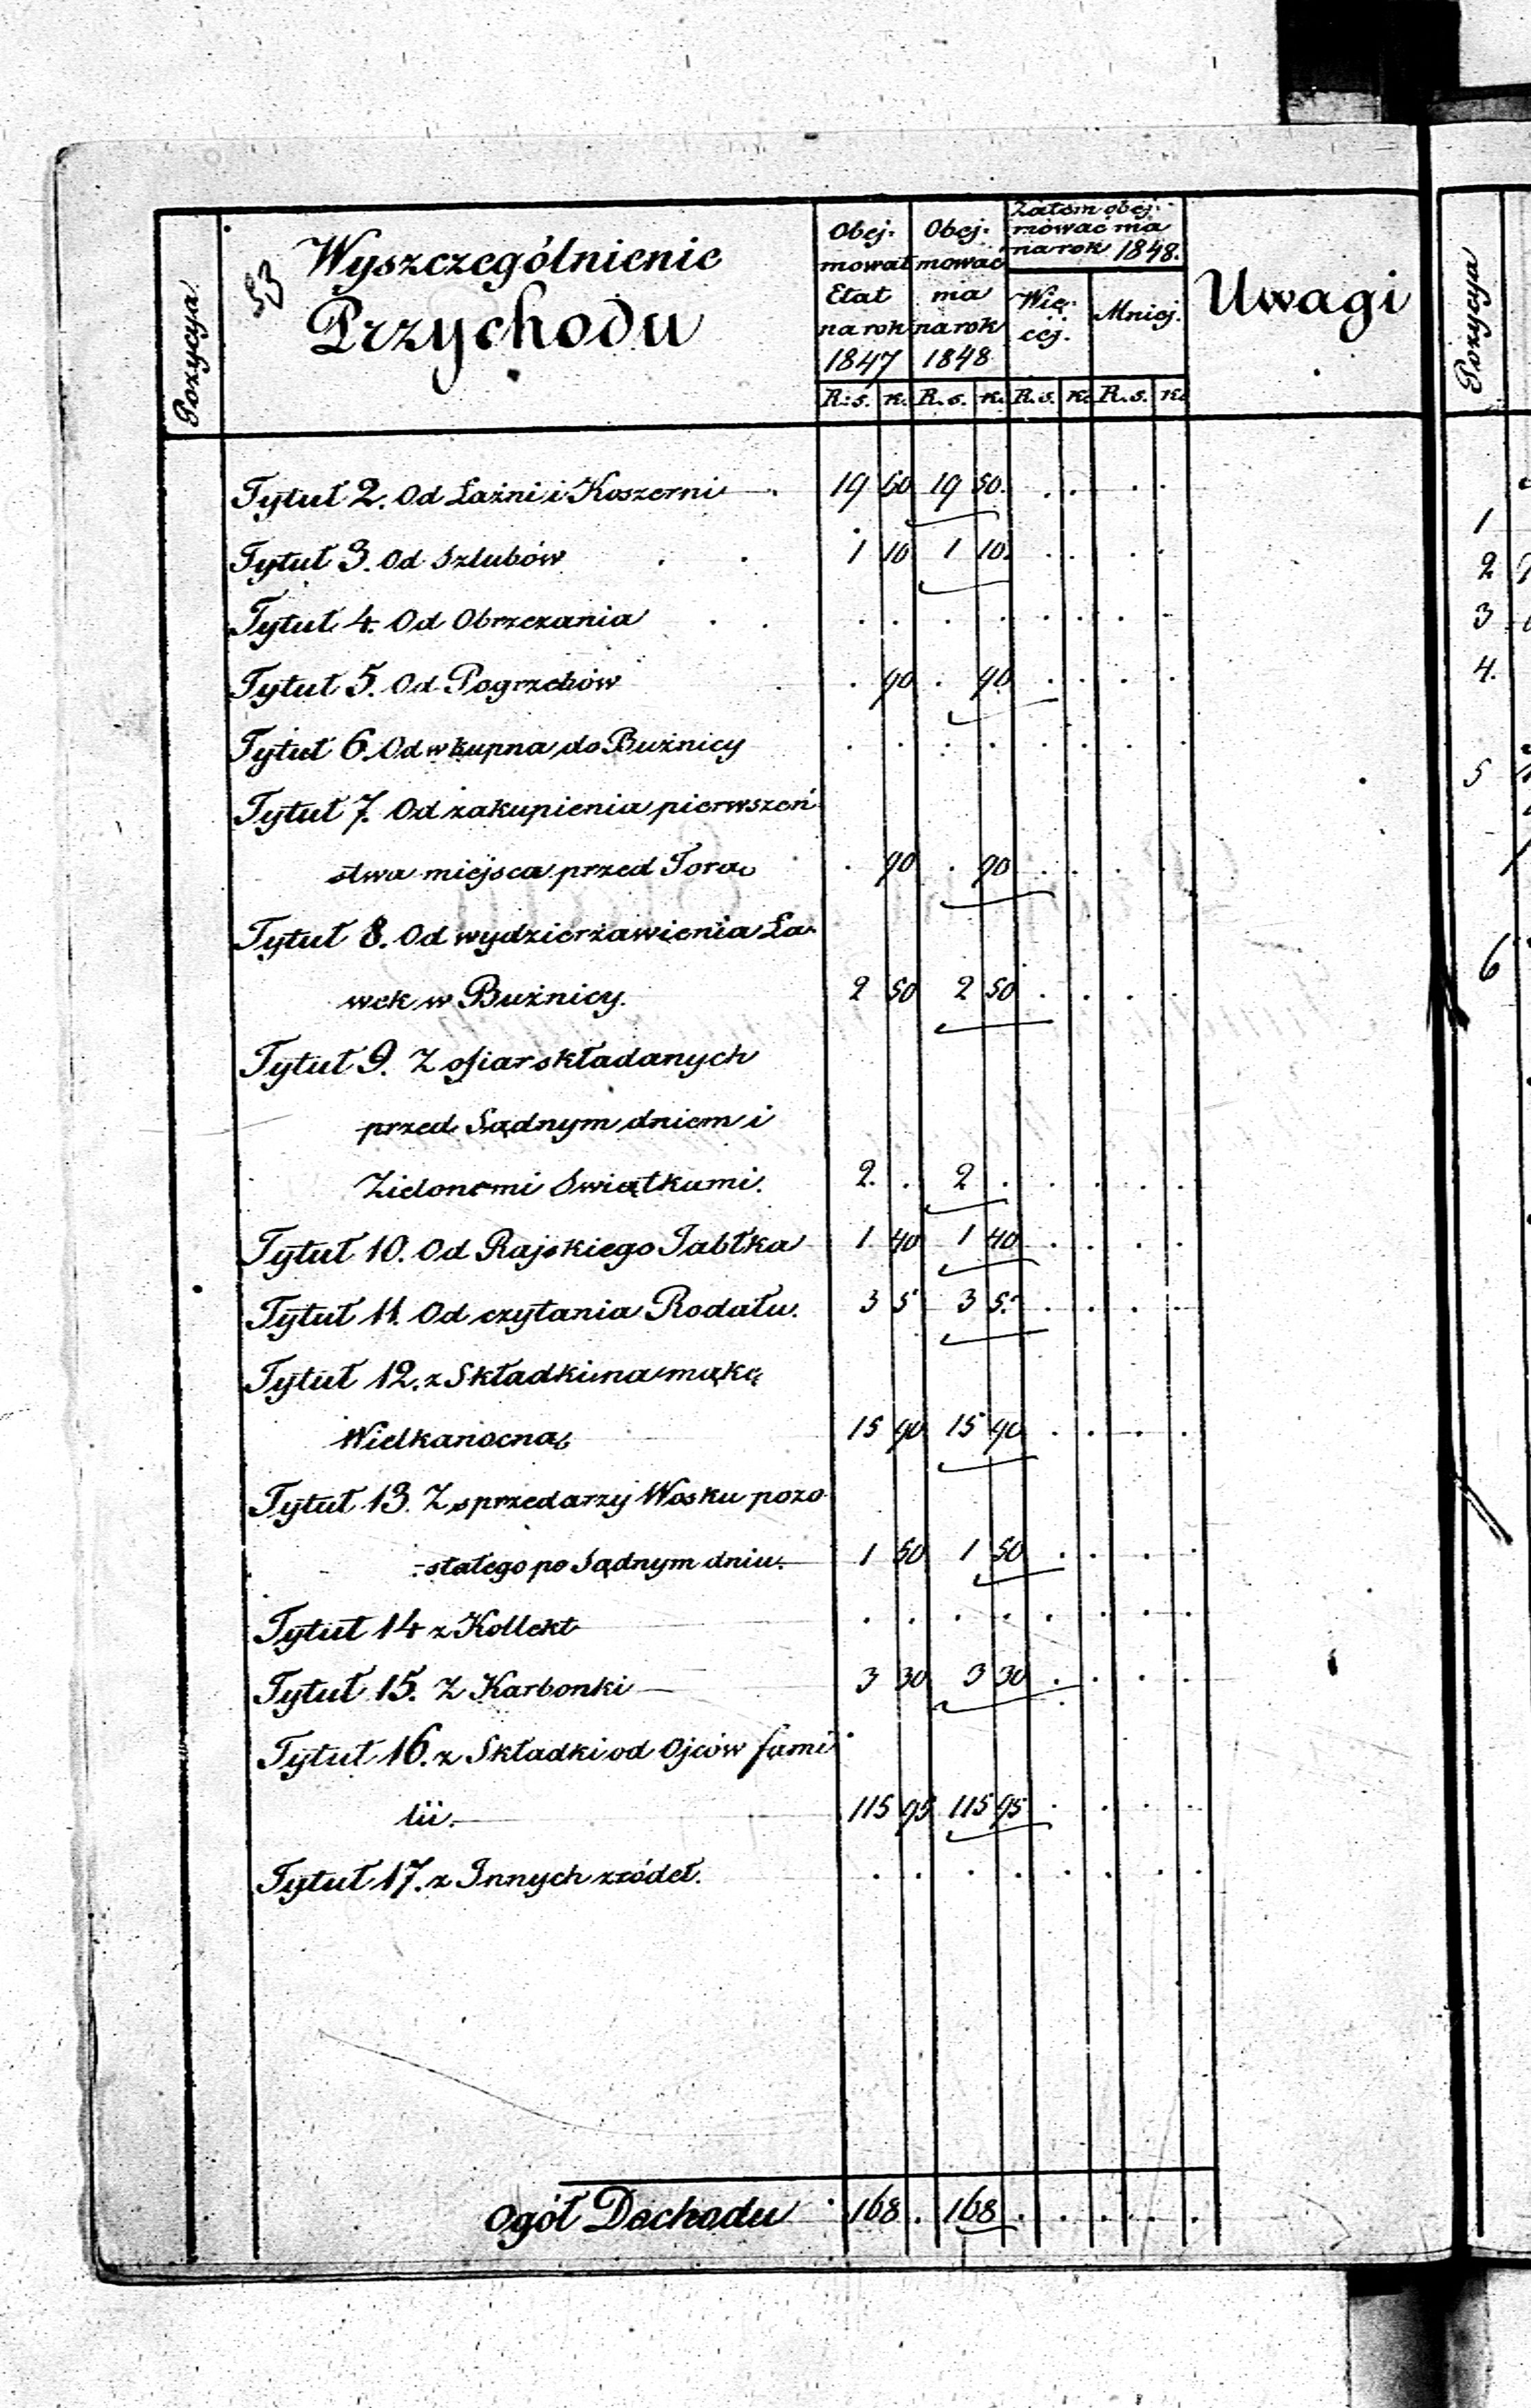 Pozycya
53
Wyszczególnienie
Przychodu
Obej-
mował
Etat
na rok
1847
Obej-
mować
ma
na rok
1848
Zatem obej-
mować ma
na rok 1848.
Wię-
cej.
Mniej.
Uwagi
R:s. k. R.s. k. R.s. k. R.s. k.
Tytuł 2. Od Łaźni i Koszerni 19 50 19 50.
Tytuł 3. Od Szlubów 1 10 1 10.
Tytuł 4. Od Obrzezania
Tytuł 5. Od Pogrzebów 90 90
Tytuł 6. Od wkupna do Bużnicy
Tytuł 7. Od zakupienia pierwszeń-
stwa miejsca przed Torą 90 90
Tytuł 8. Od wydzierżawienia Ła-
wek w Bużnicy. 2 50 2 50
Tytuł 9. Z ofiar składanych
przed Sądnym dniem i
Zielonemi Swiątkami. 2. 2
Tytuł 10. Od Rajskiego Jabłka 1 40 1 40
Tytuł 11. Od czytania Rodału. 3 5 3 5.
Tytuł 12. z Składki na mąkę
Wielkanocną 15 90 15 90
Tytuł 13. Z sprzedarzy Wosku pozo-
stałego po Sądnym dniu. 1 50 1 50
Tytuł 14 z Kollekt
Tytuł 15. Z Karbonki 3 30 3 30
Tytuł 16. z Składki od Ojców fami-
lii. 115 95 115 95
Tytuł 17. z Innych zródeł.
Ogół Dochodu 168. 168
Pozycya
1
2
3
4.
5
6